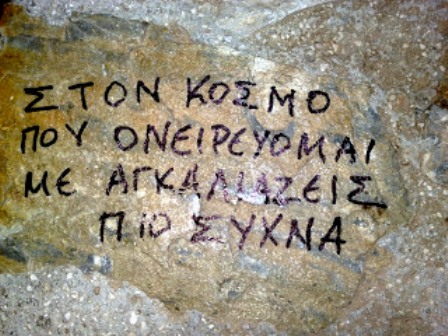 ΣΤΟΝ ΚΟΣΜΟ
ΠΟΥ ΟΝΕΙΡΕΥΟΜΑΙ
ΜΕ ΑΓΚΑΛΙΑΖΕΙΣ
ΠΙΟ ΣΥΧΝΑ